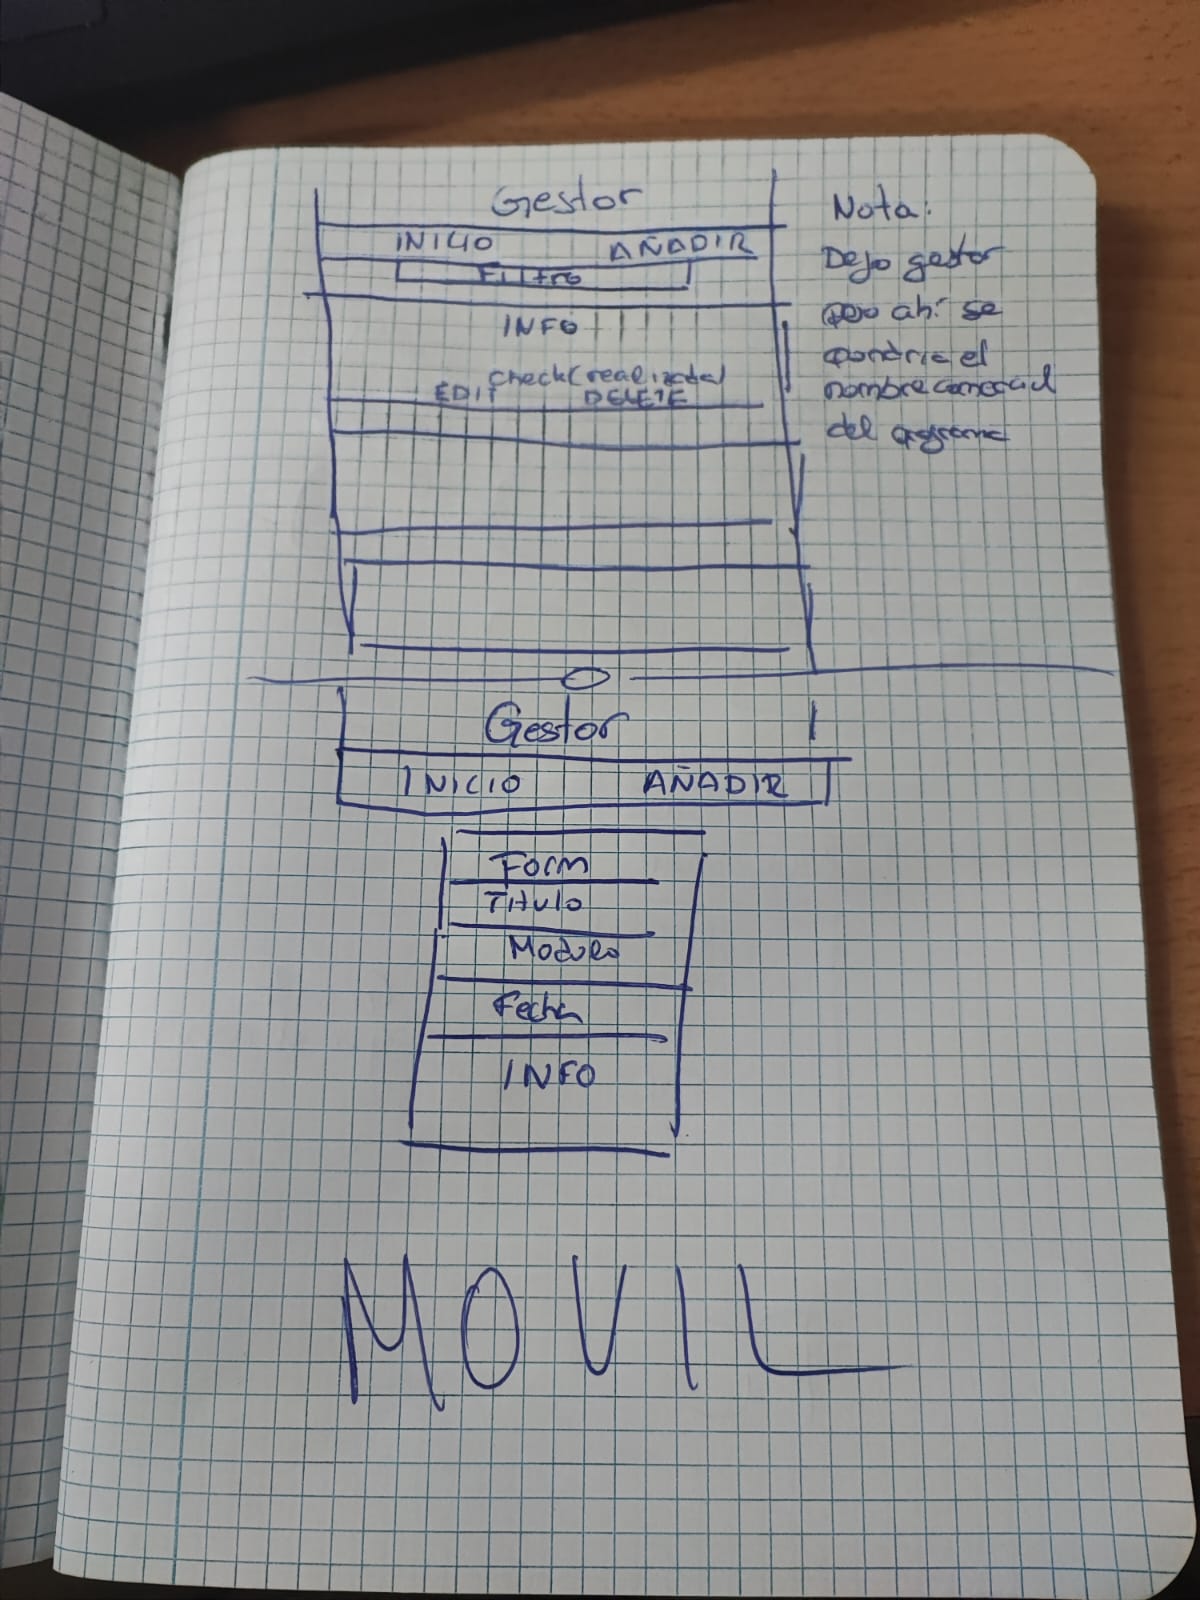 Gestor
INICIO AÑADIR
Filtro
INFO
check(realizada)
EDIT DELETE
Nota:
Dejo gestor
pero ahí se
pondria el
nombre comercial
del programa
Gestor
INICIO AÑADIR
Form
Titulo
Modulo
Fecha
INFO
MOVIL